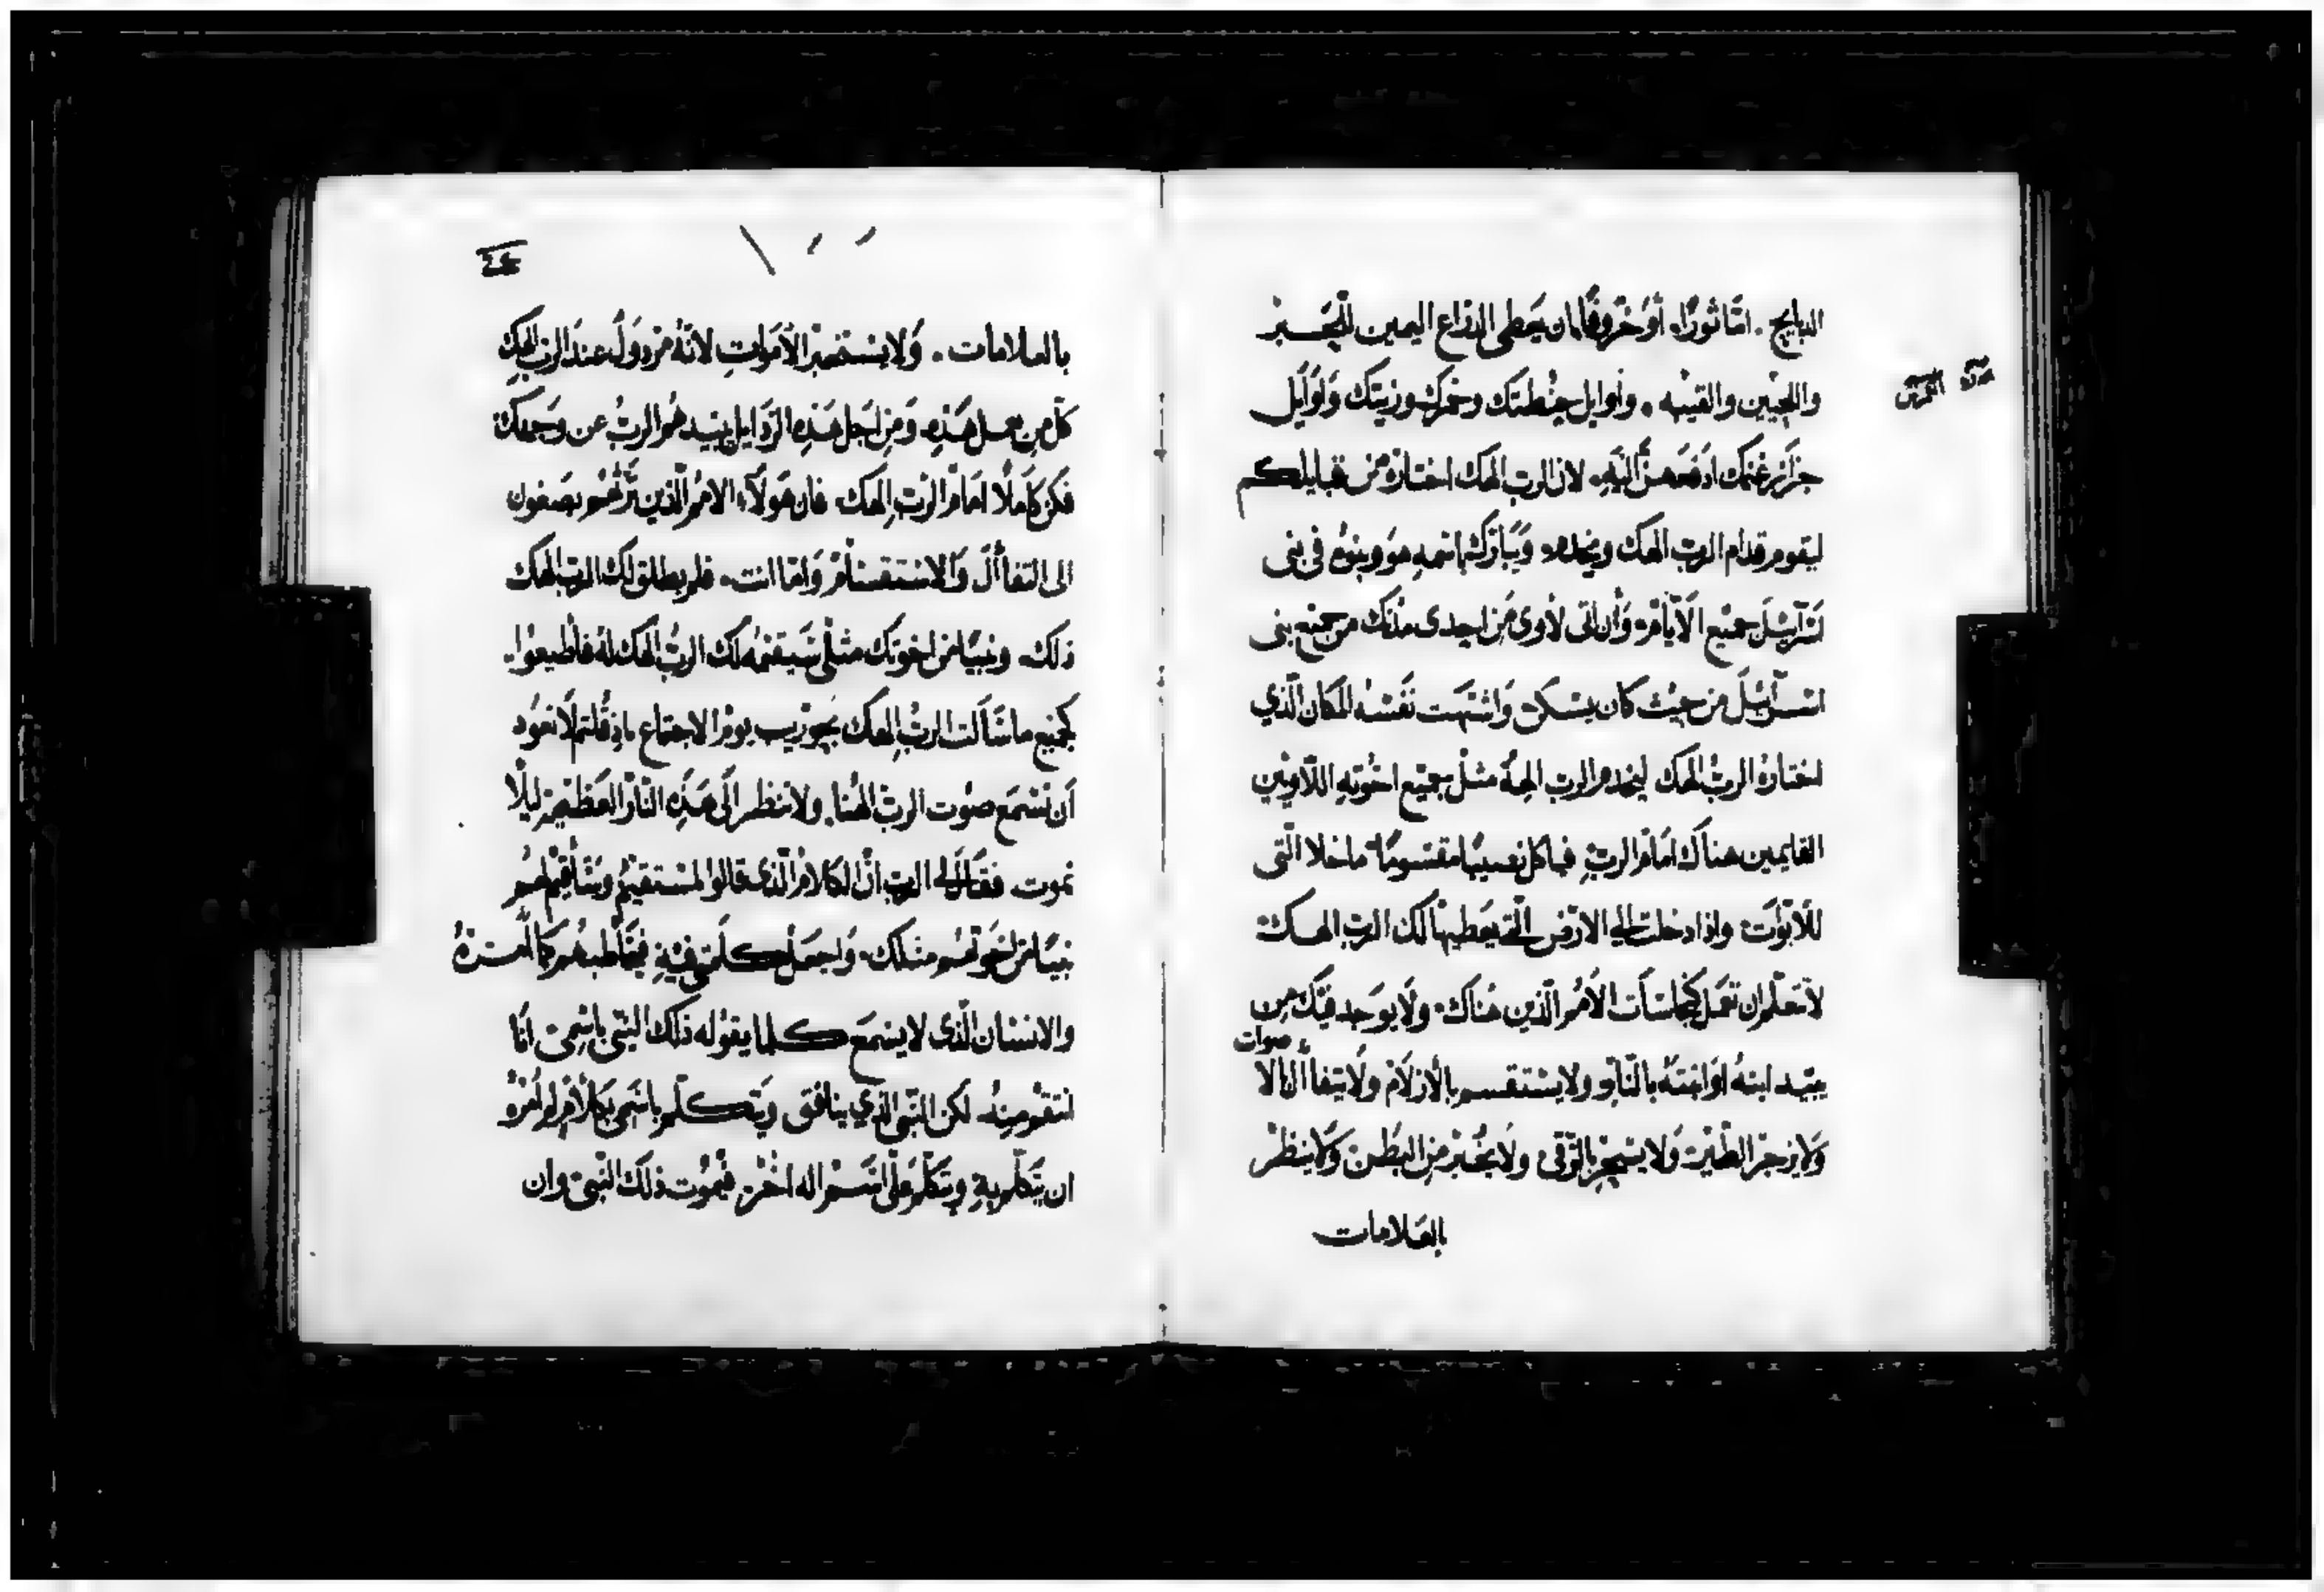 الذبايح . امّا ثورًا، أوْ خَرُوفًا، ان يَعطى الذراع اليمين للْحَبر
واللحِيين والقيبه . وأوايل حِنْطتك وخمرك وزيتك وَاوَايل
جزَاز غنمك ادفعهن اليه. لان الرب الهك اختارهُ من قبايلكم
ليقوم قدام الرب الهك ويخدمه وَيُبارك باسمه هوَ وبنوهُ في بنى
اسرآئيل جميع الايام. وان اتى لاوى من احدى مدنك من جميع بنى
اسرآئيل من حيث كان يسكن وَاشتهت نفسُه المكان الّذي
اختارهُ الربُ الهك ليخدم الرب الههُ مثل جميع اخوته اللاويين
القايمين هناك امام الربِ. فياكل نصيبًا مقسومًا ما خلا الّتى
للابوّت. واذا دخلت الى الارض التى يعطيها لك الرب الهك
لا تتعلم ان تعمل كنجاسَات الاُمم الّذين هُناك. ولا يوجد فيك من
صوات
يعيد ابنهُ او ابنتهُ بالنّار ولا يستقسم بالأزلام ولا يتفاأل الا
وَلا يزجر الطير ولا يسحر بالرّقى ولا يخبر من البطن وَلا ينظر
بالعَلامات
بالعلامات . وَلا يستخبر الاموات لانهُ مرذول عند الرب الهك
كلّ من يعمل هَذِه. وَمن اجل هَذِه الرّذايل يبيدهم الربُ عن وَجهك
فكن كاملًا امام الربّ الهك. فان هَولاَء الامم الّذين ترثهم يصغون
الى التفاأل وَالاستقسام وَاما انت. فلم يطلق لك الرب الهك
ذلك. ونبيًا من اخوتك مثلى سَيقيمه لك الربُ الهك له فاطيعوا.
كجميع ما سَالت الربُ الهك بحوريب يوم الاجتماع اذ قلتم لا نعود
ان نسمع صوت الربّ الهنا. ولا ننظر الى هَذِه النّار العظيمة ليلّا
نموت. فقال لى الرب ان الكلام الّذى قالوا لمستقيم وسَاقيم لهم
نبيًا من اخوتهم مثلك. وَاجعل كلمتى فيه فيخاطبهم كما آمرهُ
والانسان الّذى لا يسمع كلما يقوله ذلك النبى باسمى انَا
انتقم منه. لكن النّبى الذي ينافق ويَتكلّم باسمى بكلام لم امره
ان يتكلم به ويتكلم على اسم اله اخر. فيموت ذلك النّبى وان